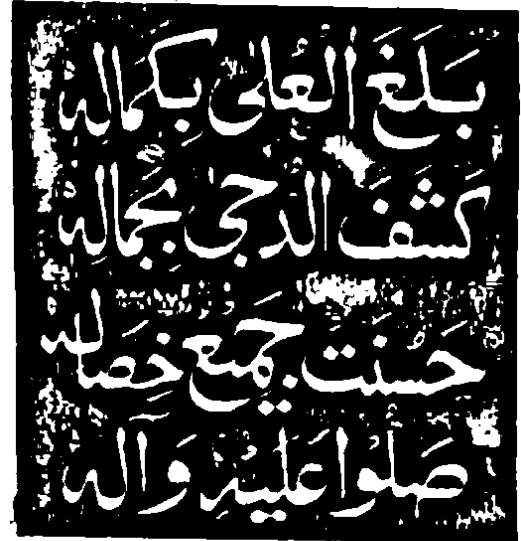 بَلَغَ العُلىٰ بِكَمالِهِ
كَشَفَ الدُّجىٰ بِجَمالِهِ
حَسُنَت جَميعُ خِصالِهِ
صَلّوا عَلَيهِ وَآلِهِ